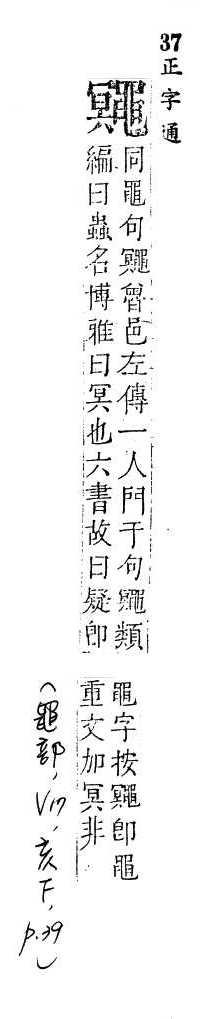 37 正字通
鼆
同黽句鼆魯邑左傳一人門于句鼆類
編曰蟲名博雅曰冥也六書故曰疑即
黽字按鼆即黽
重文加冥非
(黽部, 亥下, p.39)